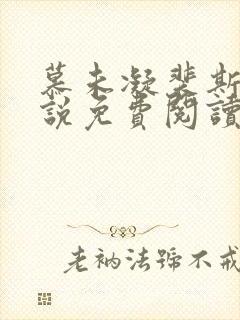 慕未凝裴斯
說免費閱讀
老衲法號不戒